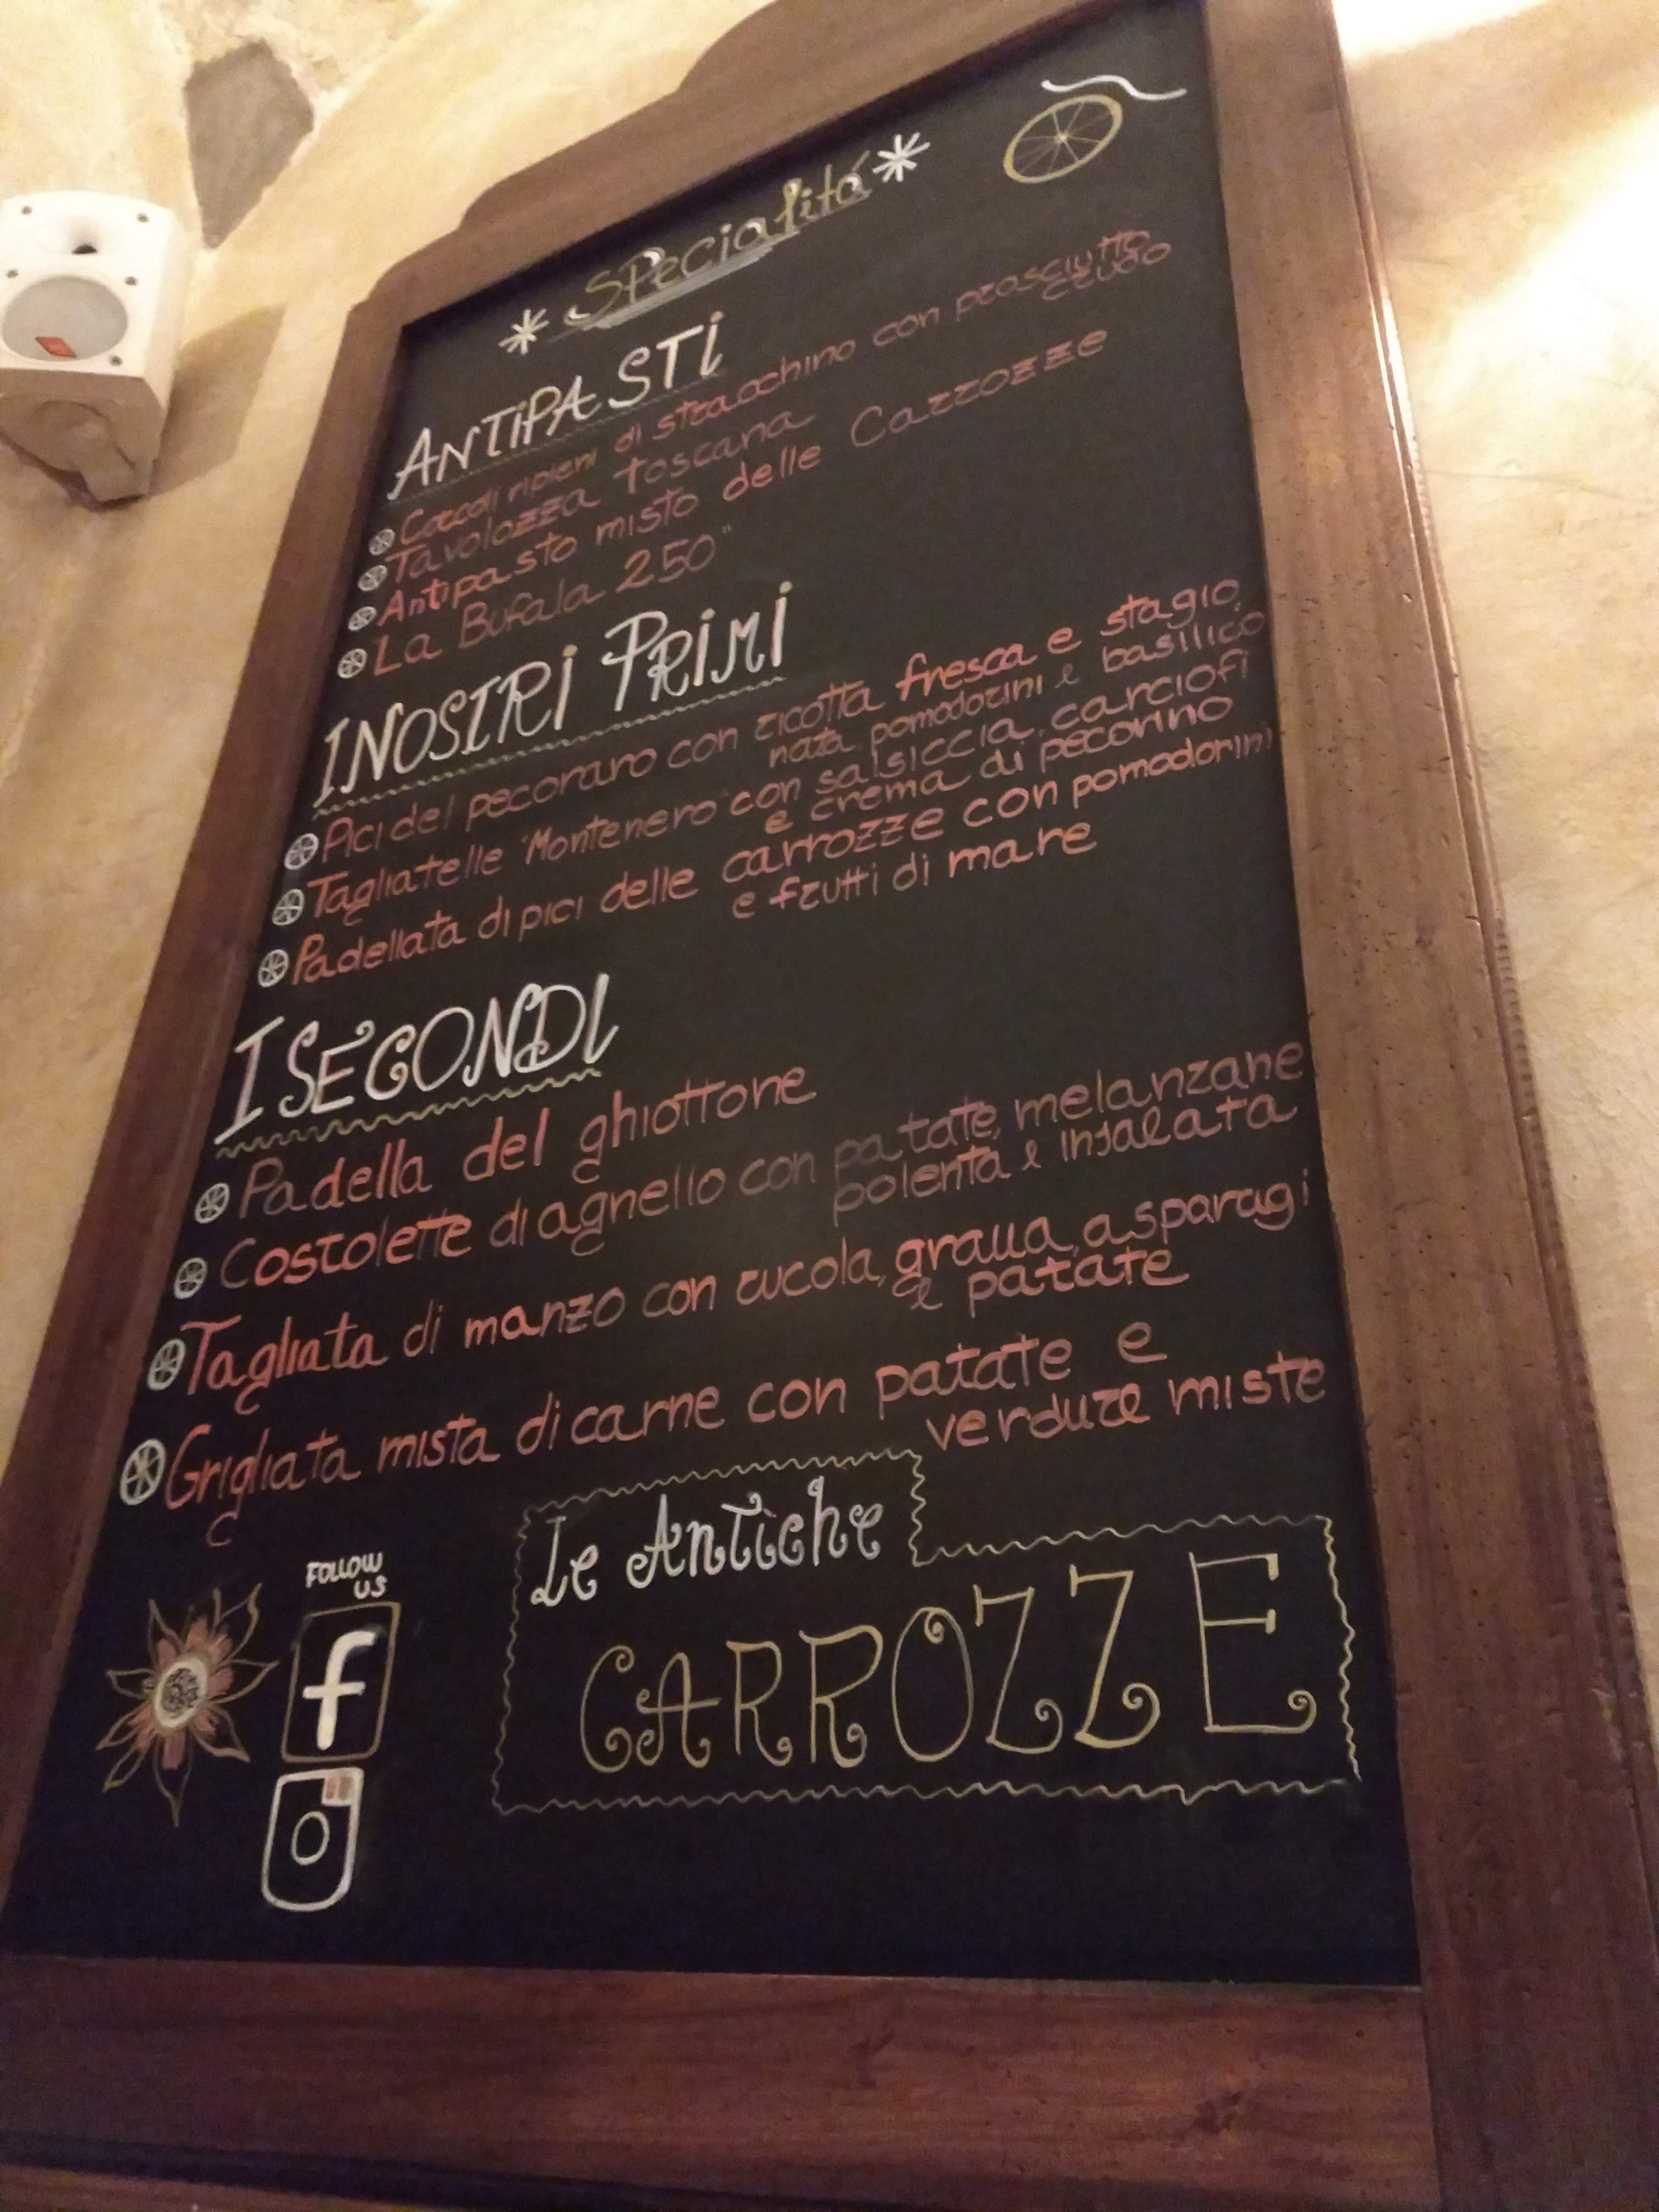 * Specialitá *
ANTIPASTI
Coccoli ripieni di stracchino con prosciutto
crudo
Tavolozza toscana
Antipasto misto delle Carrozze
La Bufala 250"
I NOSTRI PRIMI
Pici del pecoraro con ricotta fresca e stagio
nata pomodorini e basilico
Tagliatelle "Montenero" con salsiccia, carciofi
e crema di pecorino
Padellata di pici delle carrozze con pomodorini
e frutti di mare
I SECONDI
Padella del ghiottone
Costolette di agnello con patate, melanzane
polenta e insalata
Tagliata di manzo con rucola, grana, asparagi
e patate
Grigliata mista di carne con patate e
verdure miste
Le Antiche
CARROZZE
FOLLOW
US
f